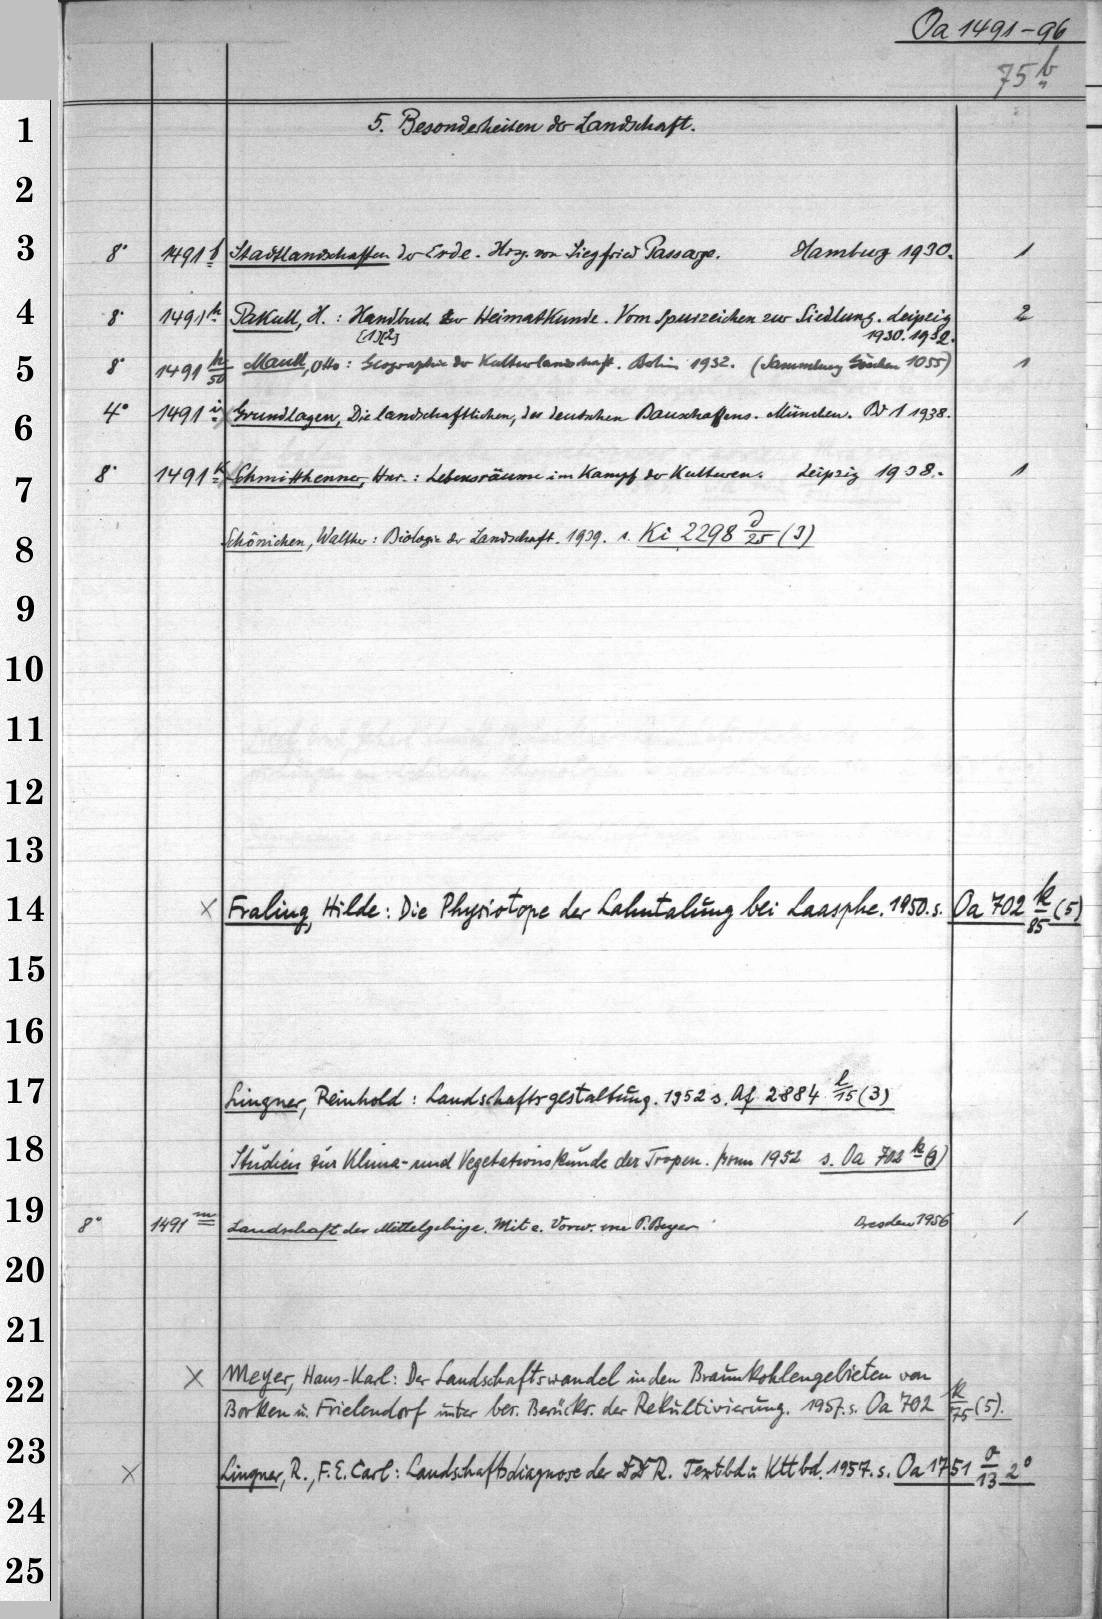 Oa 1491-96
75 b
1 5. Besonderheiten der Landschaft.
2
3 8° 1491 f Stadtlandschaften der Erde. Hrsg. von Siegfried Passarge. Hamburg 1930. 1
4 8° 1491 h Pakull, H.: Handbuch der Heimatkunde. Vom Spurzeichen zur Siedlung. Leipzig 2
[1][2] 1930. 1932.
5 8° 1491 h/50 Maull, Otto: Geographie der Kulturlandschaft. Berlin 1932. (Sammlung Göschen 1055) 1
6 4° 1491 i Grundlagen, Die landschaftlichen, des deutschen Bauschaffens. München. Bd 1 1938.
7 8° 1491 k Schmitthenner, Hnr.: Lebensräume im Kampf der Kulturen. Leipzig 1938. 1
8 Schönichen, Walther: Biologie der Landschaft. 1939. s. Ki 2298 d/25 (3)
9
10
11
12
13
14 × Fraling, Hilde: Die Physiotope der Lahntalung bei Laasphe. 1950. s. Oa 702 k/85 (5)
15
16
17 Lingner, Reinhold: Landschaftsgestaltung. 1952 s. Af 2884 l/15 (3)
18 Studien zur Klima- und Vegetationskunde der Tropen. Bonn 1952 s. Oa 702 k (9)
19 8° 1491 m Landschaft der Mittelgebirge. Mit e. Vorw. von P. Beyer Dresden 1956 1
20
21
22 × Meyer, Hans-Karl: Der Landschaftswandel in den Braunkohlengebieten von
Borken u. Frielendorf unter bes. Berücks. der Rekultivierung. 1957. s. Oa 702 k/75 (5).
23 × Lingner, R., F. E. Carl: Landschaftsdiagnose der DDR. Textbd u Kttbd. 1957. s. Oa 1751 o/13 2°
24
25